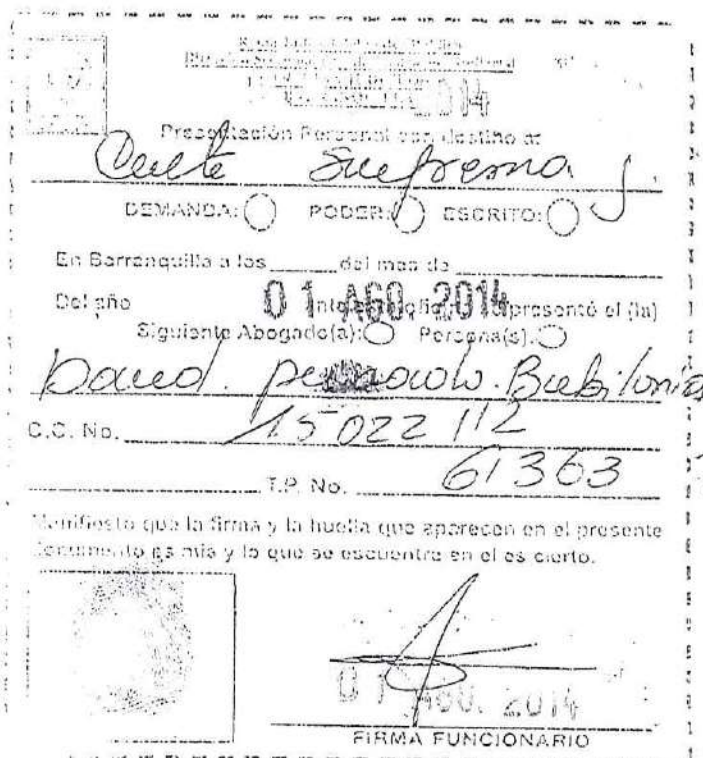 Presentación Personal con destino a:
Corte Suprema J
DEMANDA: PODER: ESCRITO:
En Barranquilla a los ______ del mes de ______
Del año 01 AGO. 2014 presentó el (la)
Siguiente Abogado(a): Persona(s):
David. Babilonia
C.C. No. 15022112
T.P. No. 61363
Manifiesto que la firma y la huella que aparecen en el presente
documento es mia y lo que se escuentra en el es cierto.
01 AGO. 2014
FIRMA FUNCIONARIO